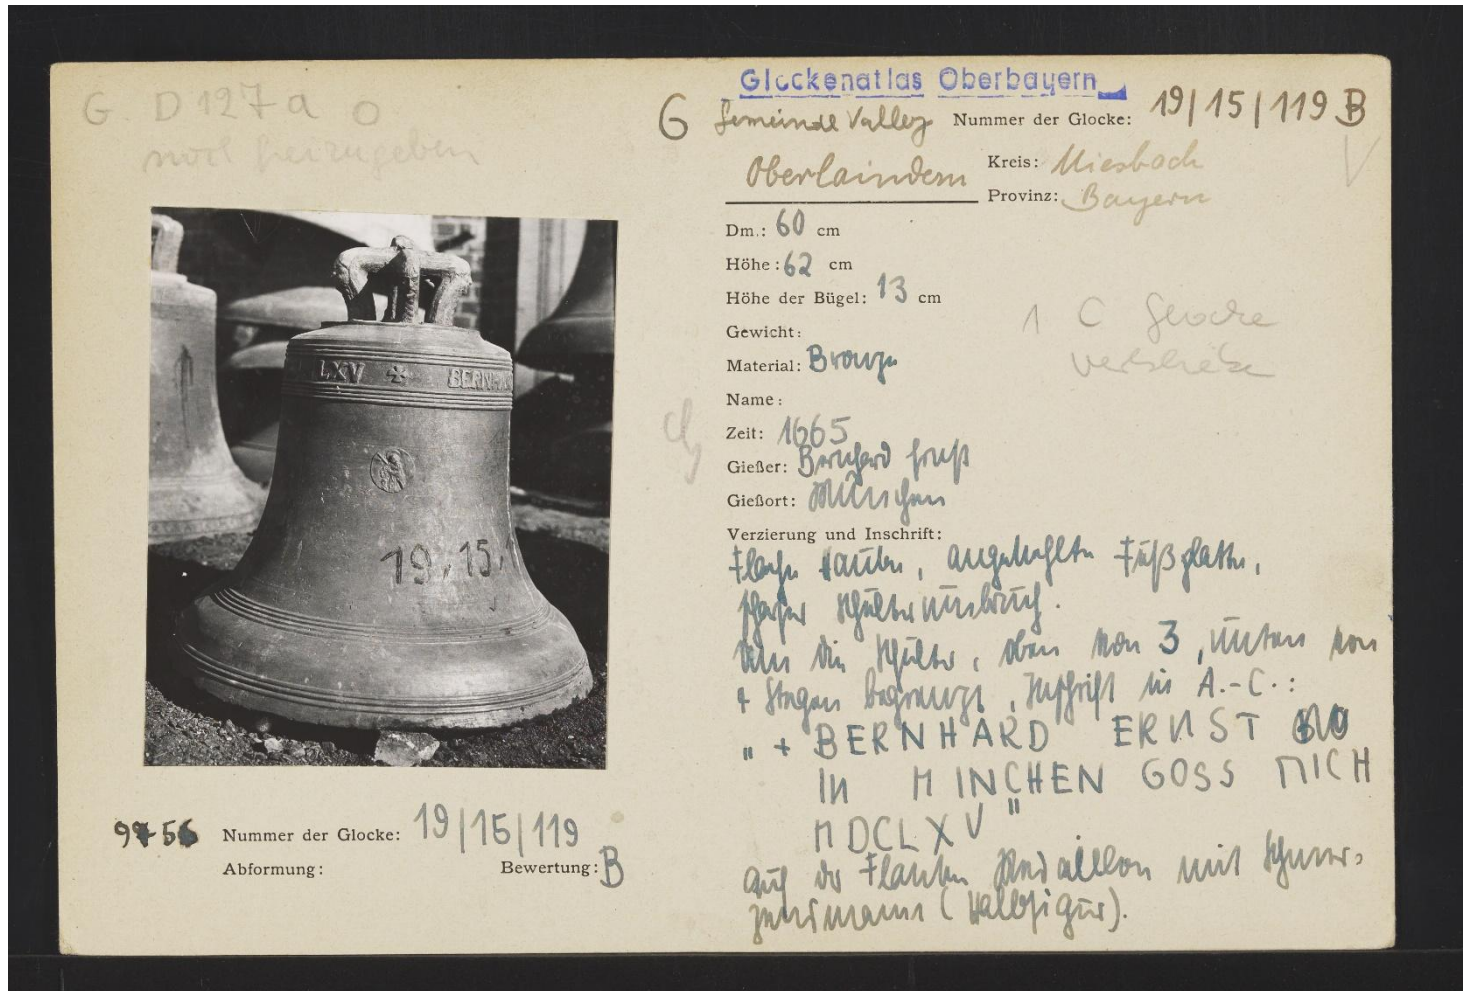 G. D 127 a O
noch freizugeben
Glockenatlas Oberbayern
G Gemeinde Valley Nummer der Glocke: 19/15/119 B
Oberlaindern Kreis: Miesbach
Provinz: Bayern
V
Dm.: 60 cm
Höhe: 62 cm
Höhe der Bügel: 13 cm
Gewicht:
1 C Glocke
Material: Bronze
Name:
Zeit: 1665
Gießer: Bernhard Ernst
Gießort: München
Verzierung und Inschrift:
Flache Haube, angekehlte Fußplatte,
scharfer Schulterumbruch.
Um die Schulter, oben von 3, unten von
4 Stegen begrenzt, Inschrift in A.-C.:
"+ BERNHARD ERNST
IN MINCHEN GOSS MICH
MDCLXV"
Auf der Flanke Medaillon mit Schmer-
zensmann (Halbfigur).
LXV + BERNHA
19.15.
Nummer der Glocke: 19/15/119
Abformung: Bewertung: B